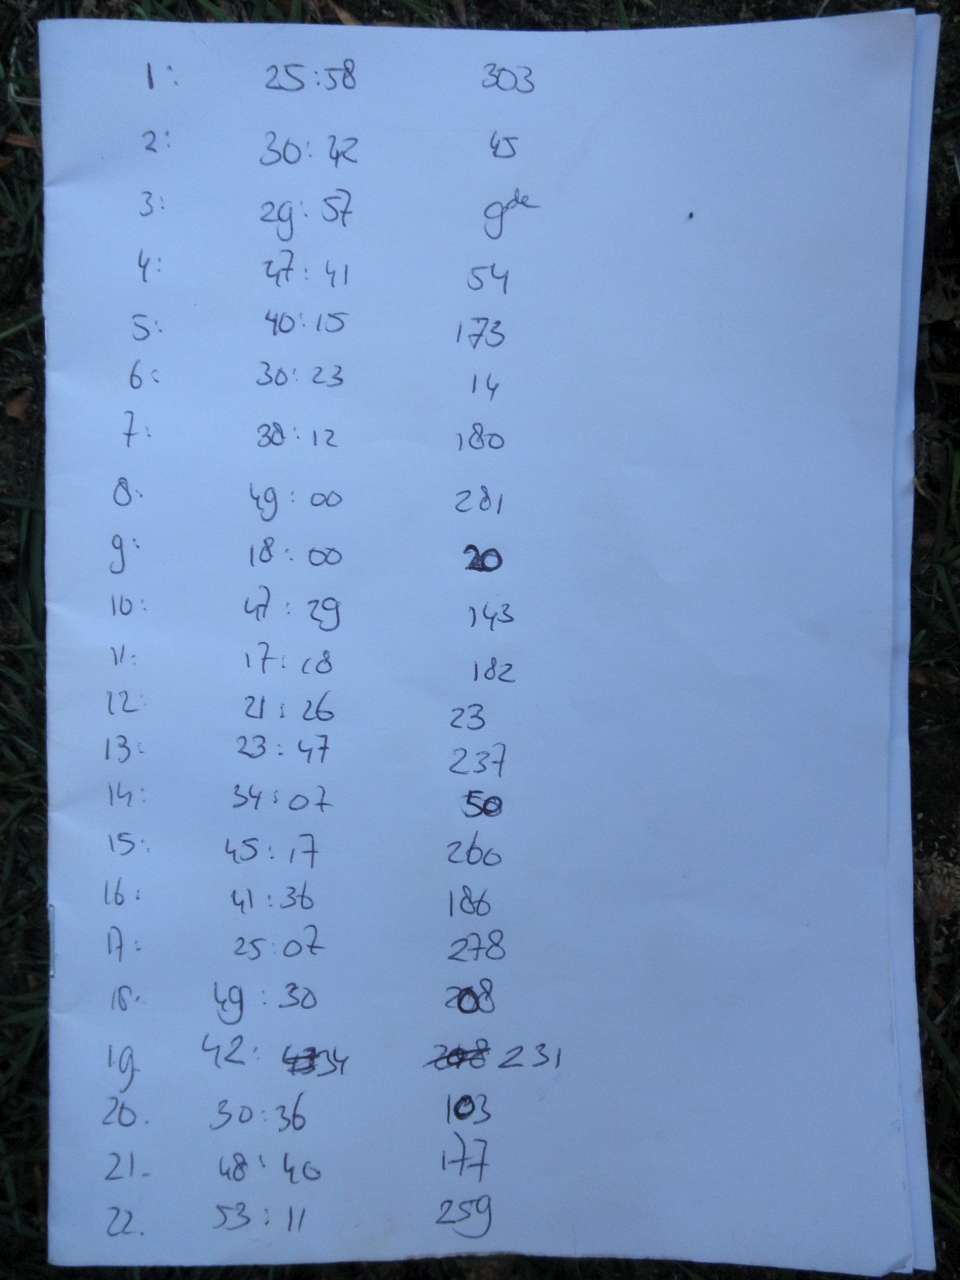 1: 25:58 303
2: 30:42 45
3: 29:57 9de
4: 47:41 54
5: 40:15 173
6: 30:23 14
7: 38:12 180
8: 49:00 281
9: 18:00 20
10: 47:29 143
11: 17:18 182
12: 21:26 23
13: 23:47 237
14: 34:07 50
15: 45:17 260
16: 41:36 186
17: 25:07 278
18. 49:30 208
19. 42:34 231
20. 30:36 103
21. 48:40 177
22. 53:11 259